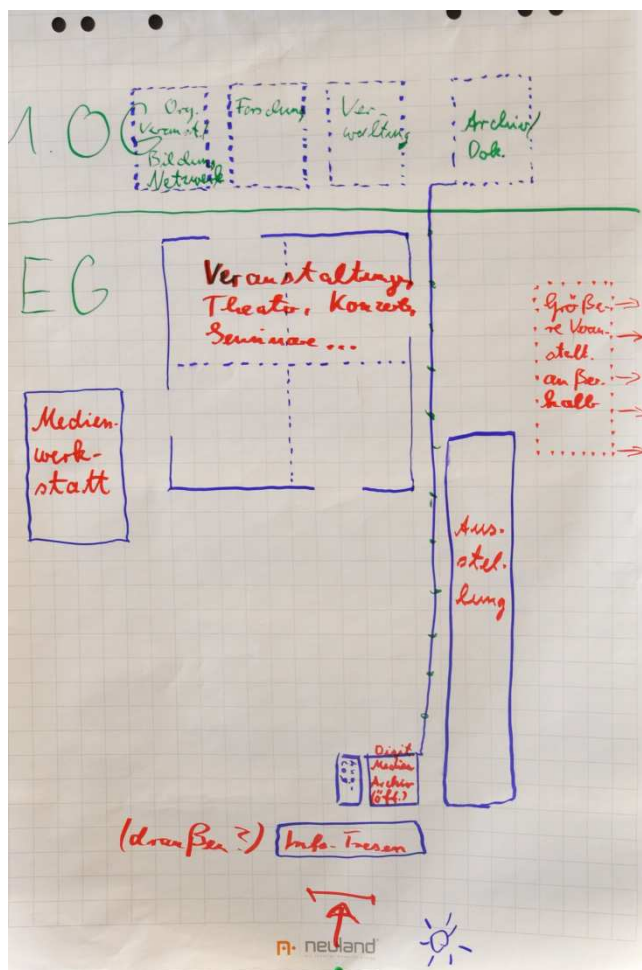 1. OG
Org.
Veranst.
Bildung
Netzwerk
Forschung
Ver-
waltung
Archiv/
Dok.
EG
Veranstaltung,
Theater, Konzert,
Seminare...
Größe-
re Veran-
stalt.
außer-
halb
Medien-
werk-
statt
Aus-
stel-
lung
Digit
Medien
Archiv
(öff.)
(draußen?)
Info-Tresen
neuland